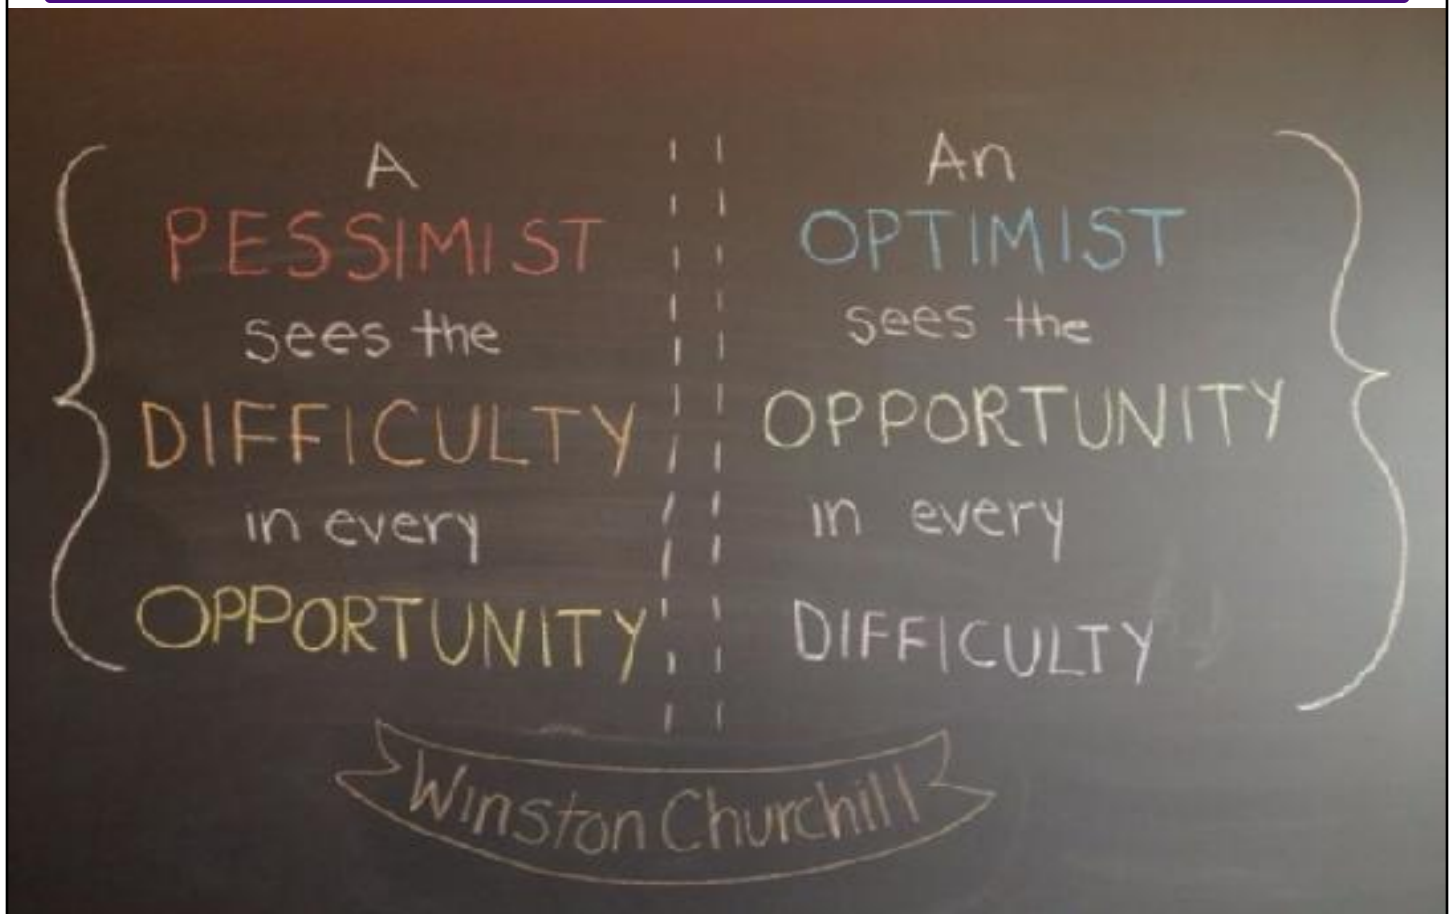 A
PESSIMIST
sees the
DIFFICULTY
in every
OPPORTUNITY
An
OPTIMIST
sees the
OPPORTUNITY
in every
DIFFICULTY
Winston Churchill